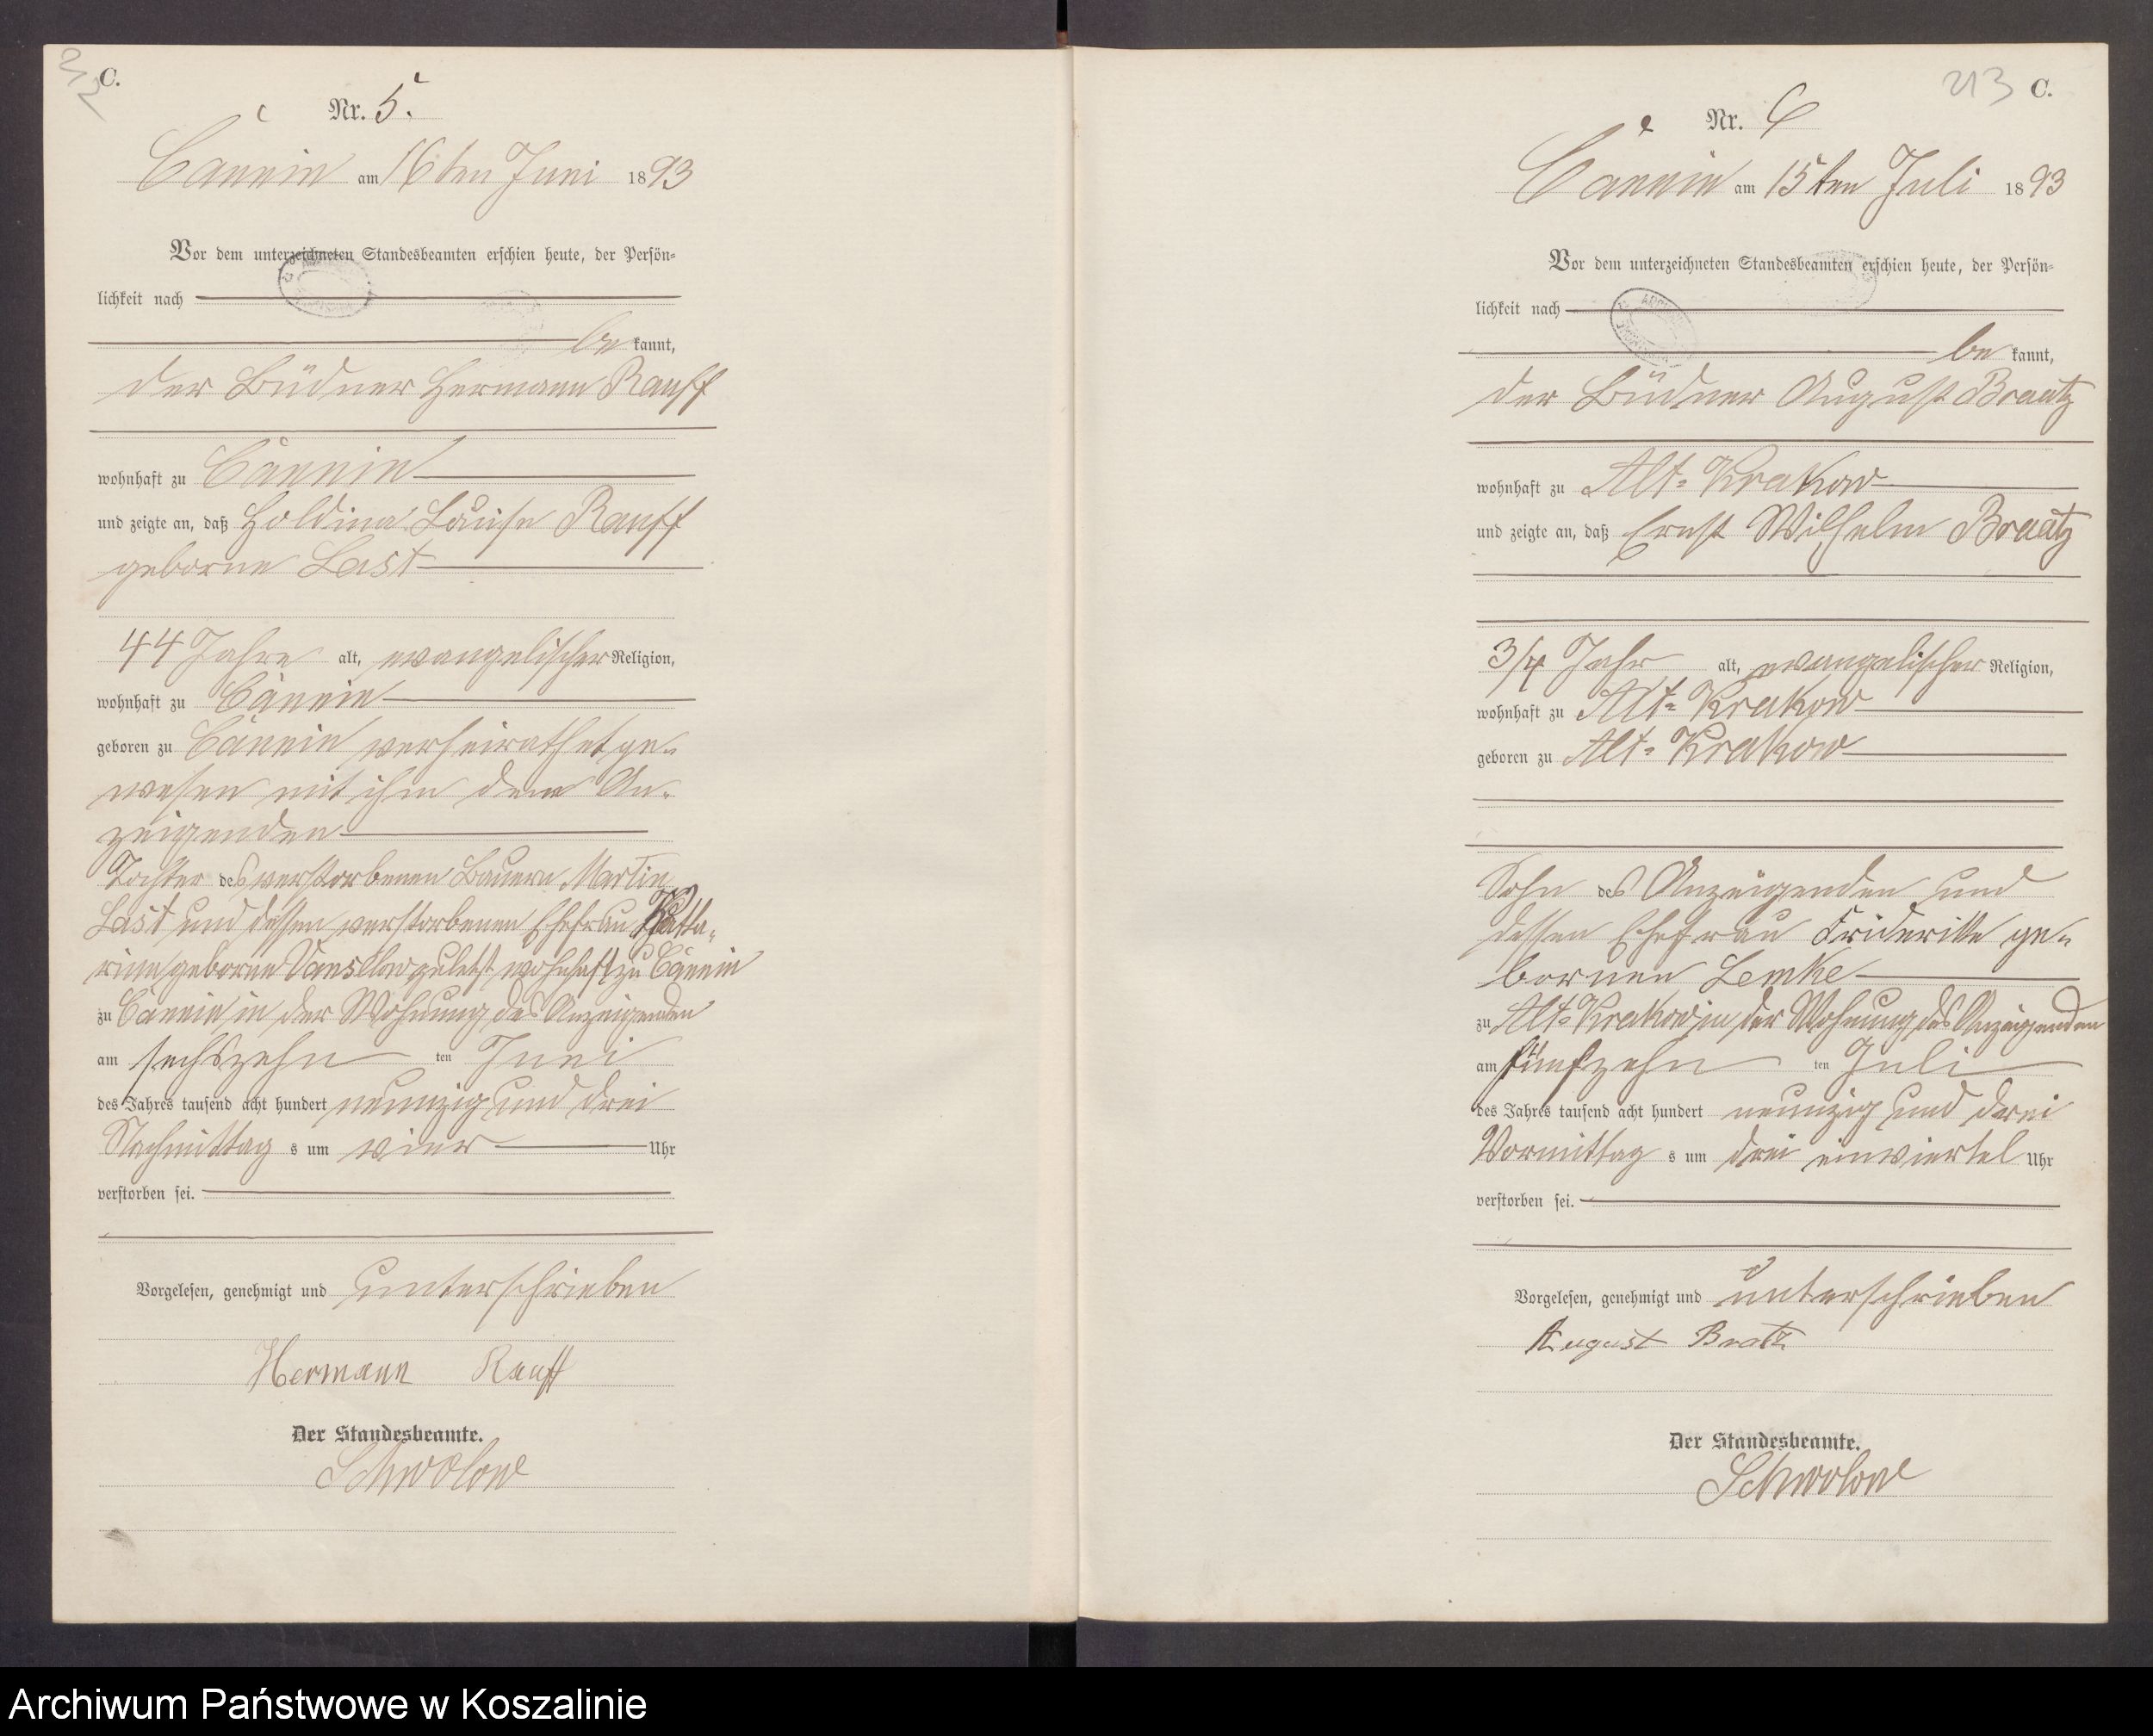 212
C.
Nr. 5.
Cännin am 16ten Juni 1893
Vor dem unterzeichneten Standesbeamten erschien heute, der Persön-
lichkeit nach
be kannt,
der Büdner Hermann Rauff
wohnhaft zu Cännin
und zeigte an, daß Holdina Louise Rauff
geborne Last
44 Jahre alt, evangelischer Religion,
wohnhaft zu Cännin
geboren zu Cännin verheirathet ge-
wesen mit ihm dem An-
zeigenden
Tochter des verstorbenen Bauern Martin
Last und dessen verstorbenen Ehefrau Katha-
rine geborne Vanselow zuletzt wohnhaft zu Cännin
zu Cännin in der Wohnung des Anzeigenden
am sechszehn ten Juni
des Jahres tausend acht hundert neunzig und drei
Nachmittag s um vier Uhr
verstorben sei.
Vorgelesen, genehmigt und unterschrieben
Hermann Rauff
Der Standesbeamte.
Schwolow
213 C.
Nr. 6
Cännin am 15ten Juli 1893
Vor dem unterzeichneten Standesbeamten erschien heute, der Persön-
lichkeit nach
be kannt,
der Büdner August Braatz
wohnhaft zu Alt-Krakow
und zeigte an, daß Ernst Wilhelm Braatz
3/4 Jahr alt, evangelischer Religion,
wohnhaft zu Alt-Krakow
geboren zu Alt-Krakow
Sohn des Anzeigenden und
dessen Ehefrau Friderike ge-
bornen Lemke
zu Alt-Krakow in der Wohnung des Anzeigenden
am fünfzehn ten Juli
des Jahres tausend acht hundert neunzig und drei
Vormittag s um drei einviertel Uhr
verstorben sei.
Vorgelesen, genehmigt und unterschrieben
August Bratz
Der Standesbeamte.
Schwolow
Archiwum Państwowe w Koszalinie